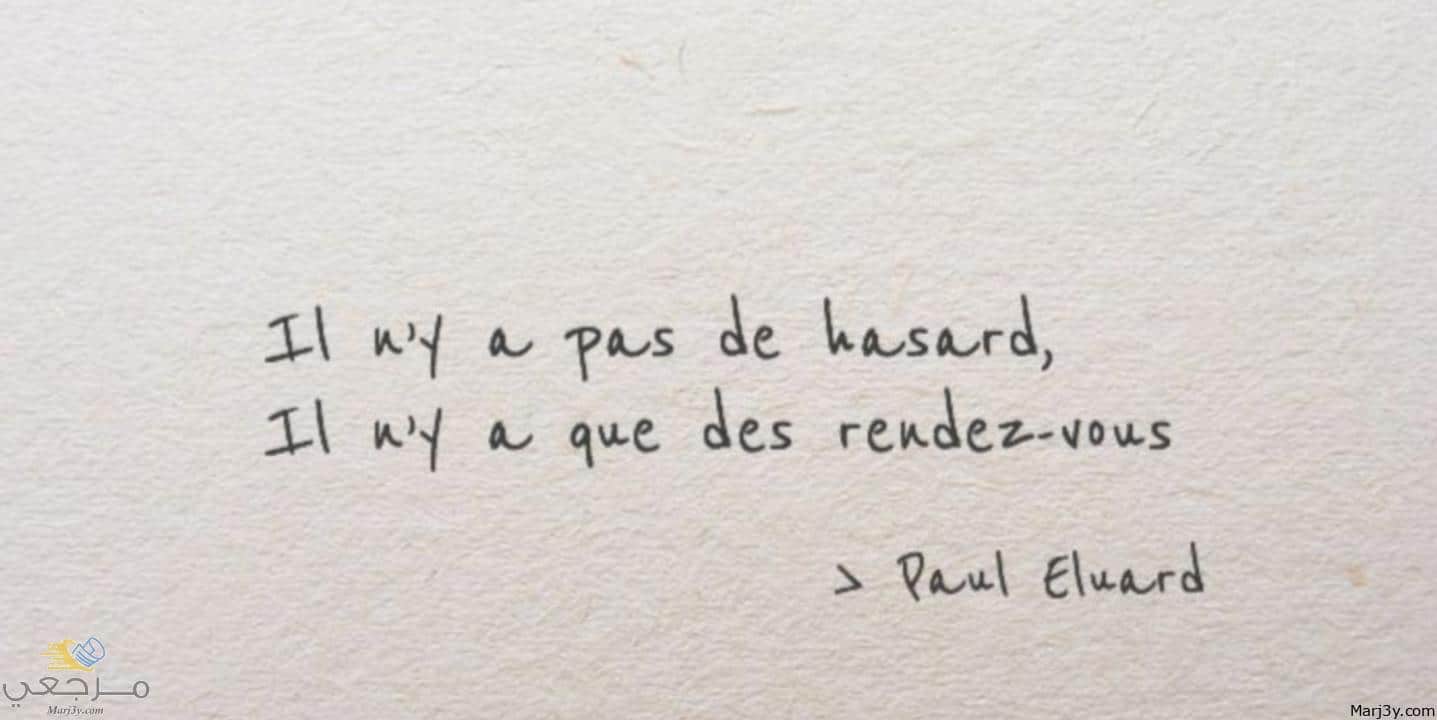 Il n'y a pas de hasard,
Il n'y a que des rendez-vous
> Paul Eluard
مرجعي
Marj3y.com
Marj3y.com